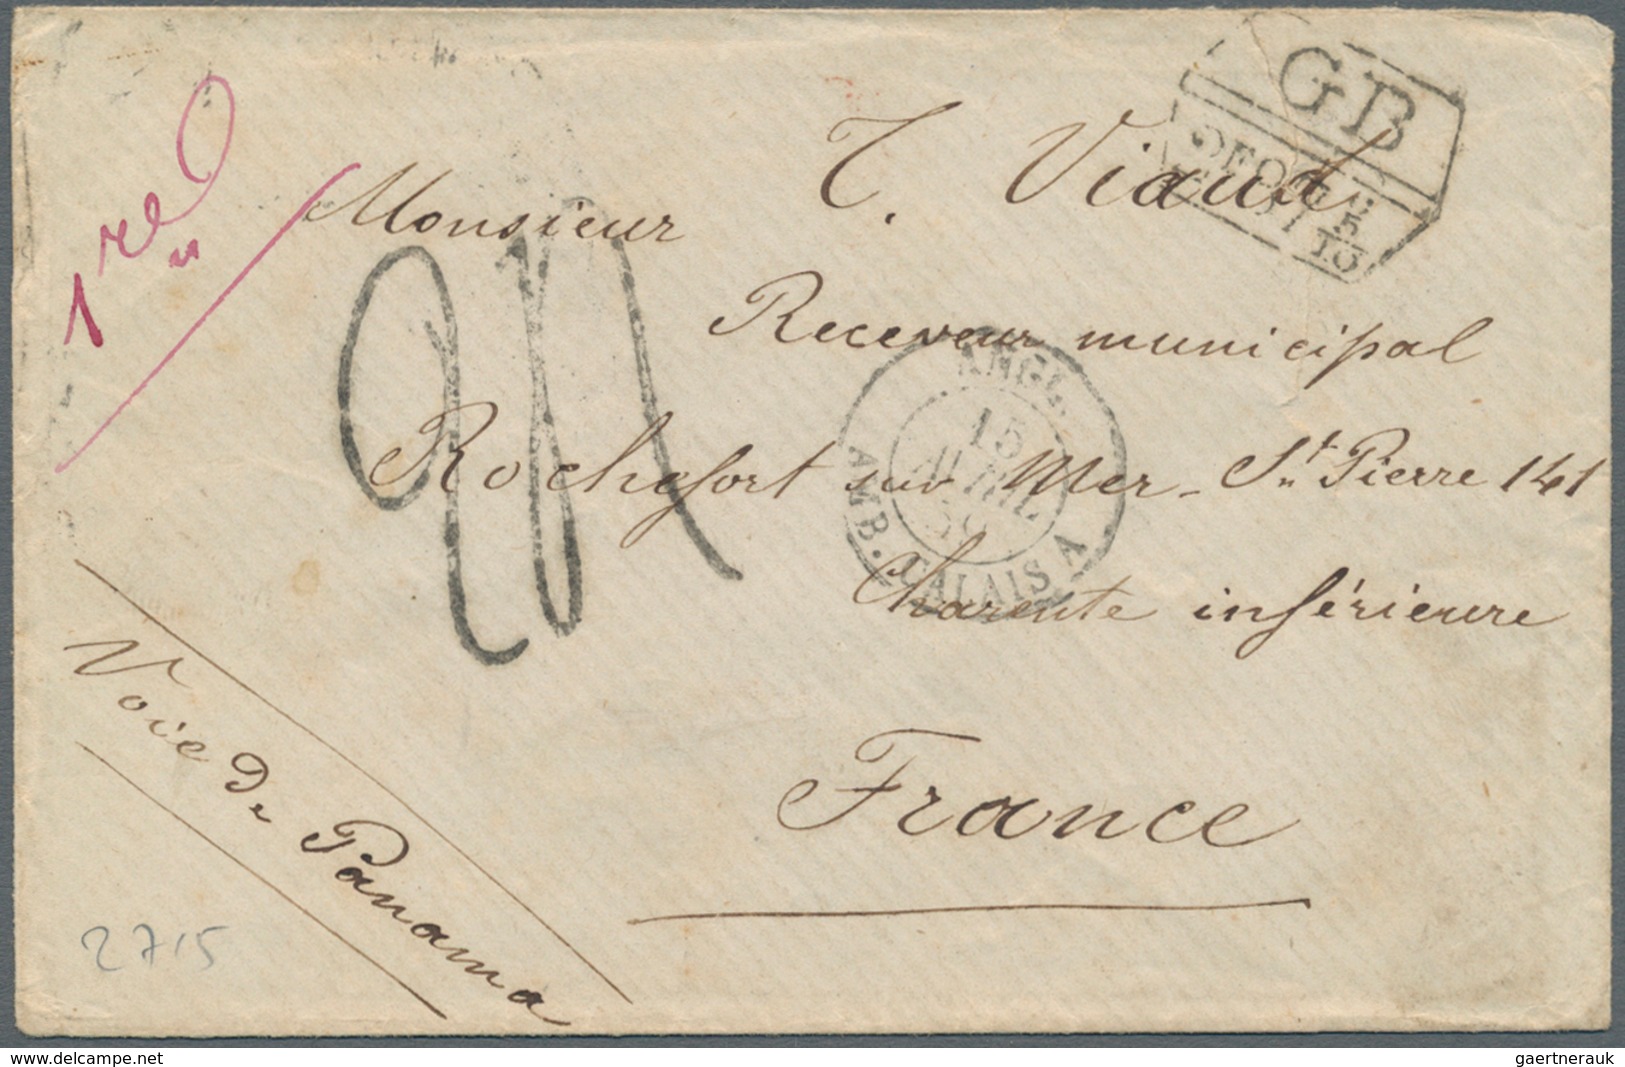 1re
GB
Monsieur T. Viaud
Receveur municipal
Rochefort sur Mer - St. Pierre 141
Charente inférieure
France
ANGL.
15
AVRIL
59
AMB. CALAIS A
24
Voie de Panama
2715
www.delcampe.net
gaertnerauk